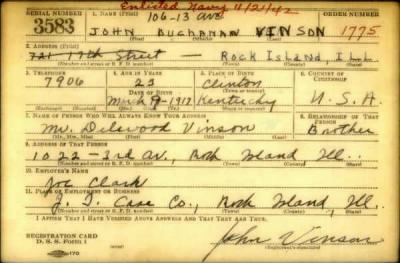 Enlisted Navy 11/21/42
SERIAL NUMBER 1. NAME (Print) ORDER NUMBER
106-13 Ave
3583 JOHN BUCHANAN VINSON 1775
(First) (Middle) (Last)
2. ADDRESS (Print)
721 17th Street — ROCK ISLAND, ILL
(Number and street or R. F. D. number) (Town) (County) (State)
3. TELEPHONE 4. AGE IN YEARS 5. PLACE OF BIRTH 6. COUNTRY OF CITIZENSHIP
7906 23 Clinton
DATE OF BIRTH
March 9-1917 Kentucky U.S.A.
(Mo.) (Day) (Yr.) (State or country)
7. NAME OF PERSON WHO WILL ALWAYS KNOW YOUR ADDRESS 8. RELATIONSHIP OF THAT PERSON
Mr. Delwood Vinson Brother
(Mr., Mrs., Miss) (First) (Middle) (Last)
9. ADDRESS OF THAT PERSON
1022-3rd Av., Rock Island Ill..
(Number and street or R. F. D. number) (Town) (County) (State)
10. EMPLOYER'S NAME
Joe Clark
11. PLACE OF EMPLOYMENT OR BUSINESS
J. I. Case Co., Rock Island, Ill.
(Number and street or R. F. D. number) (Town) (County) (State)
I AFFIRM THAT I HAVE VERIFIED ABOVE ANSWERS AND THAT THEY ARE TRUE.
REGISTRATION CARD
D. S. S. Form 1
John Vinson
(Registrant's signature)